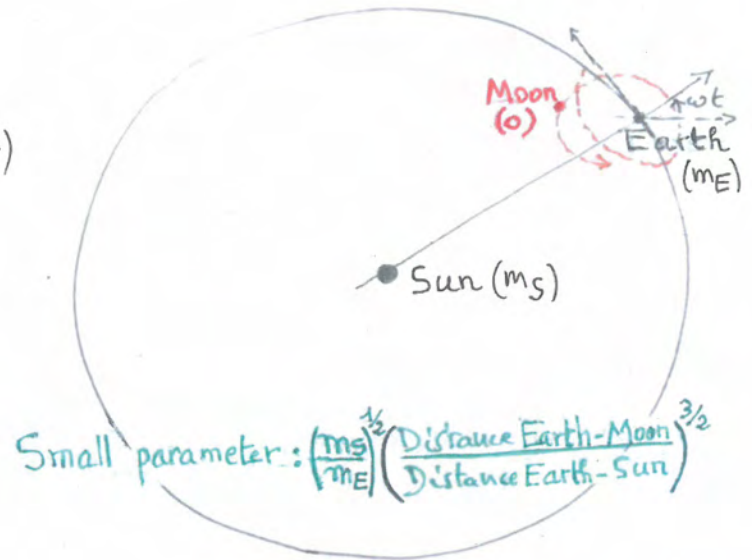 Moon
(0)
ωt
Earth
(mE)
)
Sun (mS)
Small parameter : (mS/mE)^1/2 (Distance Earth-Moon/Distance Earth-Sun)^3/2